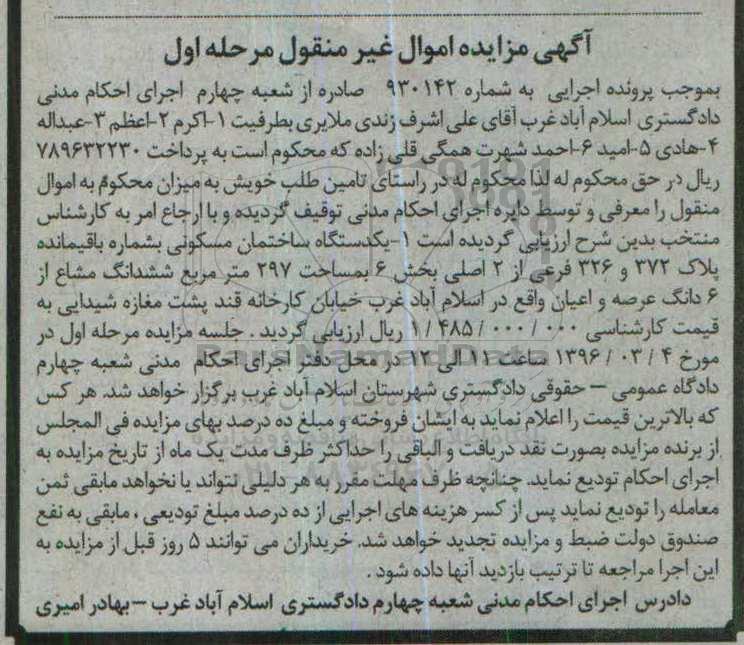 آگهی مزایده اموال غیر منقول مرحله اول
بموجب پرونده اجرایی به شماره ۹۳۰۱۴۲ صادره از شعبه چهارم اجرای احکام مدنی
دادگستری اسلام آباد غرب آقای علی اشرف زندی ملایری بطرفیت ۱-اکرم ۲-اعظم ۳-عبداله
۴-هادی ۵-امید ۶-احمد شهرت همگی قلی زاده که محکوم است به پرداخت ۷۸۹۶۳۲۲۳۰
ریال در حق محکوم له لذا محکوم له در راستای تامین طلب خویش به میزان محکوم به اموال
منقول را معرفی و توسط دایره اجرای احکام مدنی توقیف گردیده و با ارجاع امر به کارشناس
منتخب بدین شرح ارزیابی گردیده است ۱-یکدستگاه ساختمان مسکونی بشماره باقیمانده
پلاک ۳۷۲ و ۳۲۶ فرعی از ۲ اصلی بخش ۶ بمساحت ۲۹۷ متر مربع ششدانگ مشاع از
۶ دانگ عرصه و اعیان واقع در اسلام آباد غرب خیابان کارخانه قند پشت مغازه شیدایی به
قیمت کارشناسی ۰۰۰ / ۰۰۰ / ۴۸۵ / ۱ ریال ارزیابی گردید . جلسه مزایده مرحله اول در
مورخ ۴ / ۰۳ / ۱۳۹۶ ساعت ۱۱ الی ۱۲ در محل دفتر اجرای احکام مدنی شعبه چهارم
دادگاه عمومی – حقوقی دادگستری شهرستان اسلام آباد غرب برگزار خواهد شد. هر کس
که بالاترین قیمت را اعلام نماید به ایشان فروخته و مبلغ ده درصد بهای مزایده فی المجلس
از برنده مزایده بصورت نقد دریافت و الباقی را حداکثر ظرف مدت یک ماه از تاریخ مزایده به
اجرای احکام تودیع نماید. چنانچه ظرف مهلت مقرر به هر دلیلی نتواند یا نخواهد مابقی ثمن
معامله را تودیع نماید پس از کسر هزینه های اجرایی از ده درصد مبلغ تودیعی ، مابقی به نفع
صندوق دولت ضبط و مزایده تجدید خواهد شد. خریداران می توانند ۵ روز قبل از مزایده به
این اجرا مراجعه تا ترتیب بازدید آنها داده شود .
دادرس اجرای احکام مدنی شعبه چهارم دادگستری اسلام آباد غرب – بهادر امیری